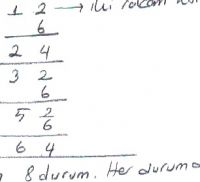 1 2 → iki rakam
6
2 4
3 2
6
5 2
6
6 4
8 durum. Her durumo